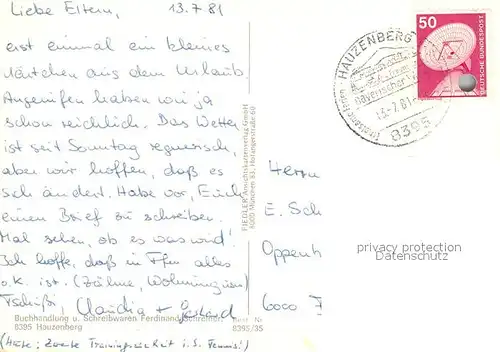 Liebe Eltern, 13.7.81
erst einmal ein kleines
Kärtchen aus dem Urlaub.
Angerufen haben wir ja
schon reichlich. Das Wetter
ist seit Sonntag regnerisch,
aber wir hoffen, daß es
sich ändert. Habe vor, Euch
einen Brief zu schreiben.
Mal sehen, ob es was wird!
Ich hoffe, daß in Ffm alles
o.k. ist. (Zähne, Wohnung)
Tschüß, Claudia +
(Heute: zweite Trainingseinheit i.S. Tennis!)
Buchhandlung u. Schreibwaren Ferdinand Schreiner
8395 Hauzenberg
Best. Nr.
8395/35
FIEDLER Ansichtskartenverlag GmbH
8000 München 83,
HAUZENBERG
bayerischer
13.-7.81
8395
50
DEUTSCHE BUNDESPOST
Herrn
E. Sch
Oppenh
6000 F
privacy protection
Datenschutz